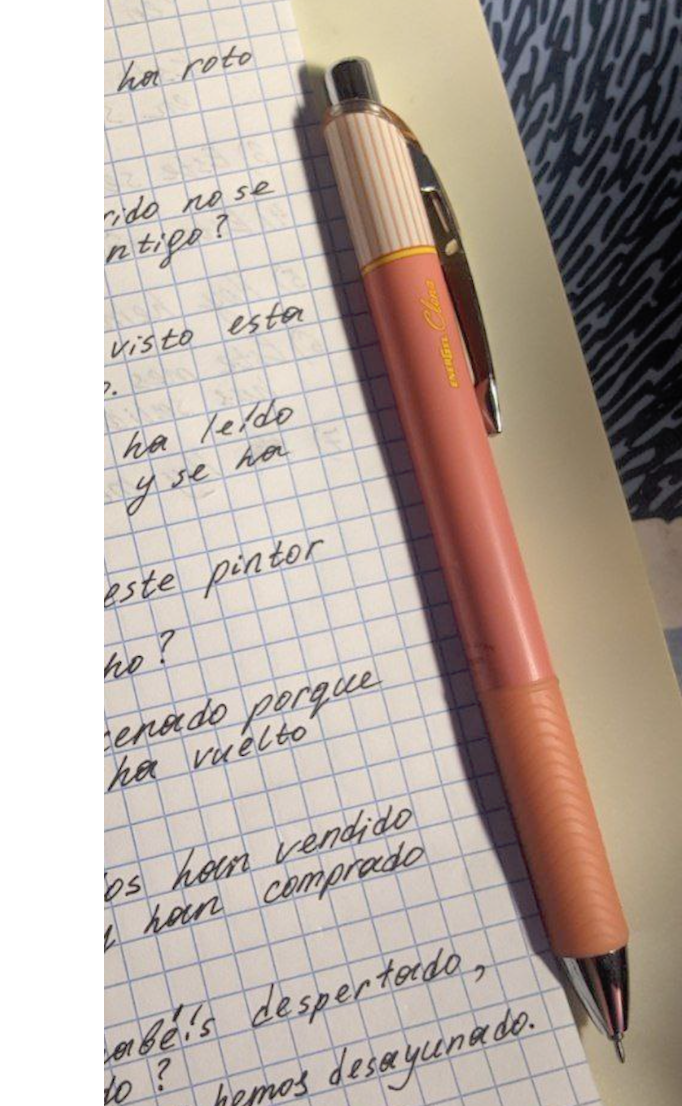 ha roto
rido no se
ntigo?
visto esta
o.
ha leído
y se ha
este pintor
ho?
cenado porque
ha vuelto
os han vendido
y han comprado
habéis despertado,
do?
hemos desayunado.
ENERGEL Clena